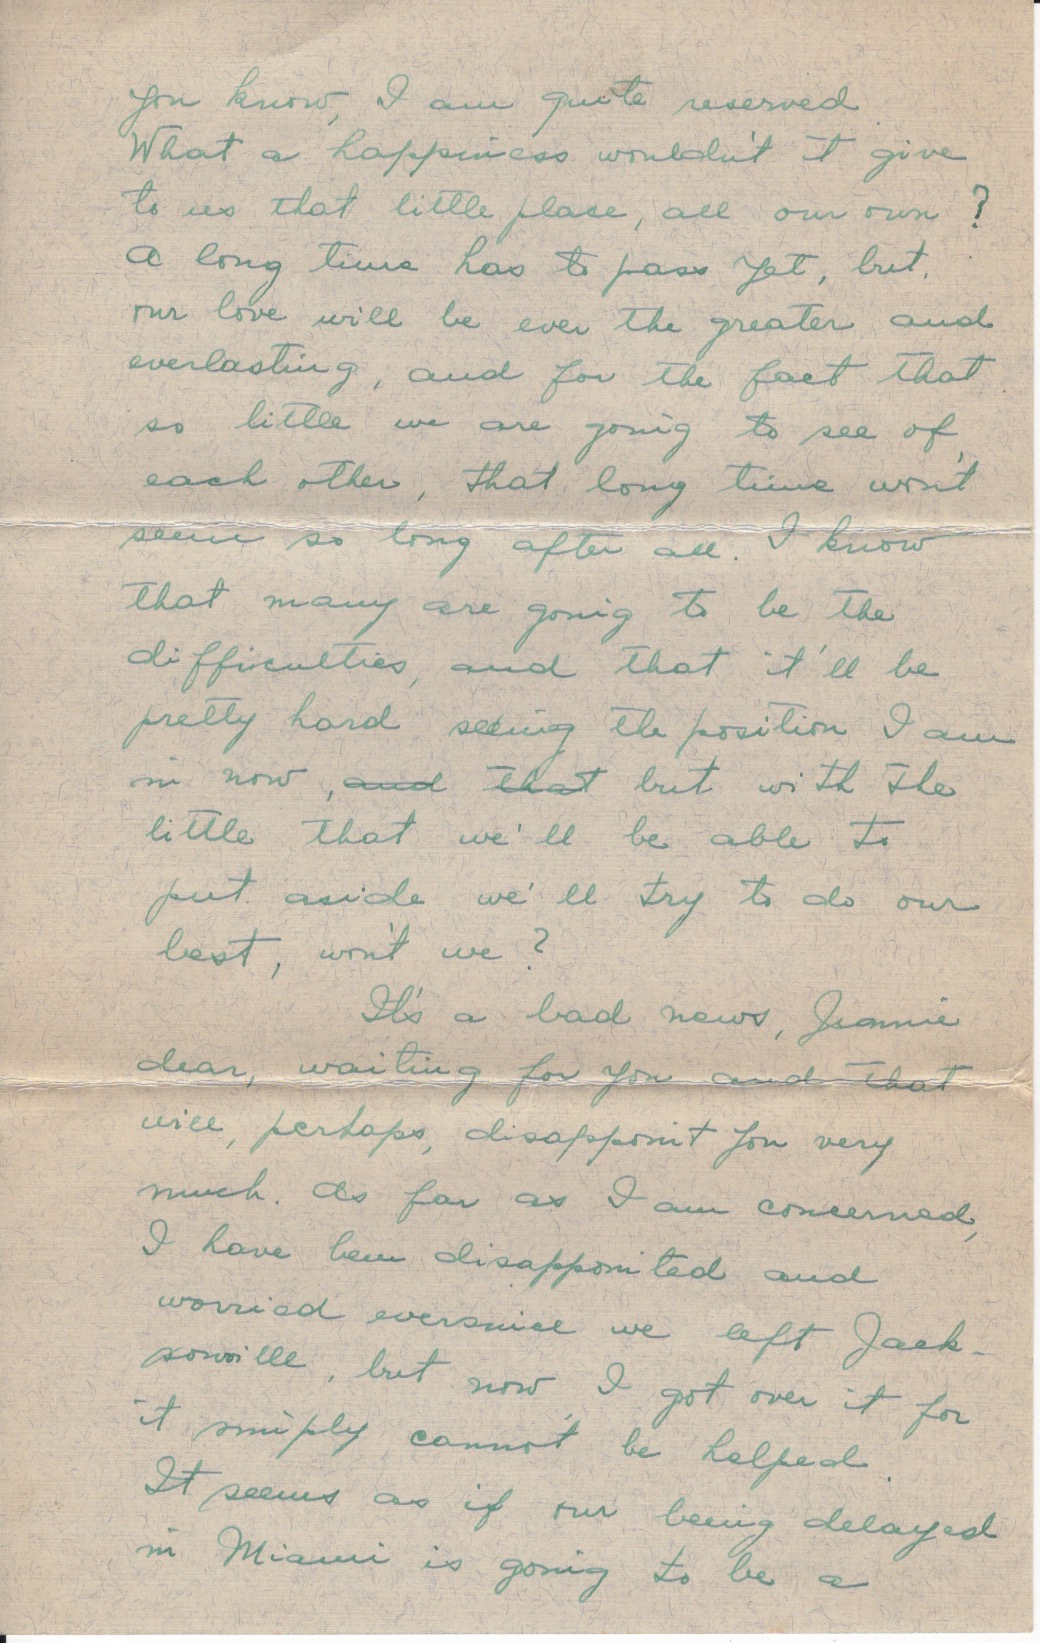 you know, I am quite reserved.
What a happiness wouldn't it give
to us that little plase, all our own?
A long time has to pass yet, but,
our love will be ever the greater and
everlasting, and for the fact that
so little we are going to see of
each other, that long time won't
seem so long after all. I know
that many are going to be the
difficulties, and that it'll be
pretty hard seeing the position I am
in now, and that but with the
little that we'll be able to
put aside we'll try to do our
best, won't we?
It's a bad news, Jeannie
dear, waiting for you and that
will, perhaps, disappoint you very
much. As far as I am concerned,
I have been disappointed and
worried eversince we left Jack-
sonville, but now, I got over it for
it simply cannot be helped.
It seems as if our being delayed
in Miami is going to be a